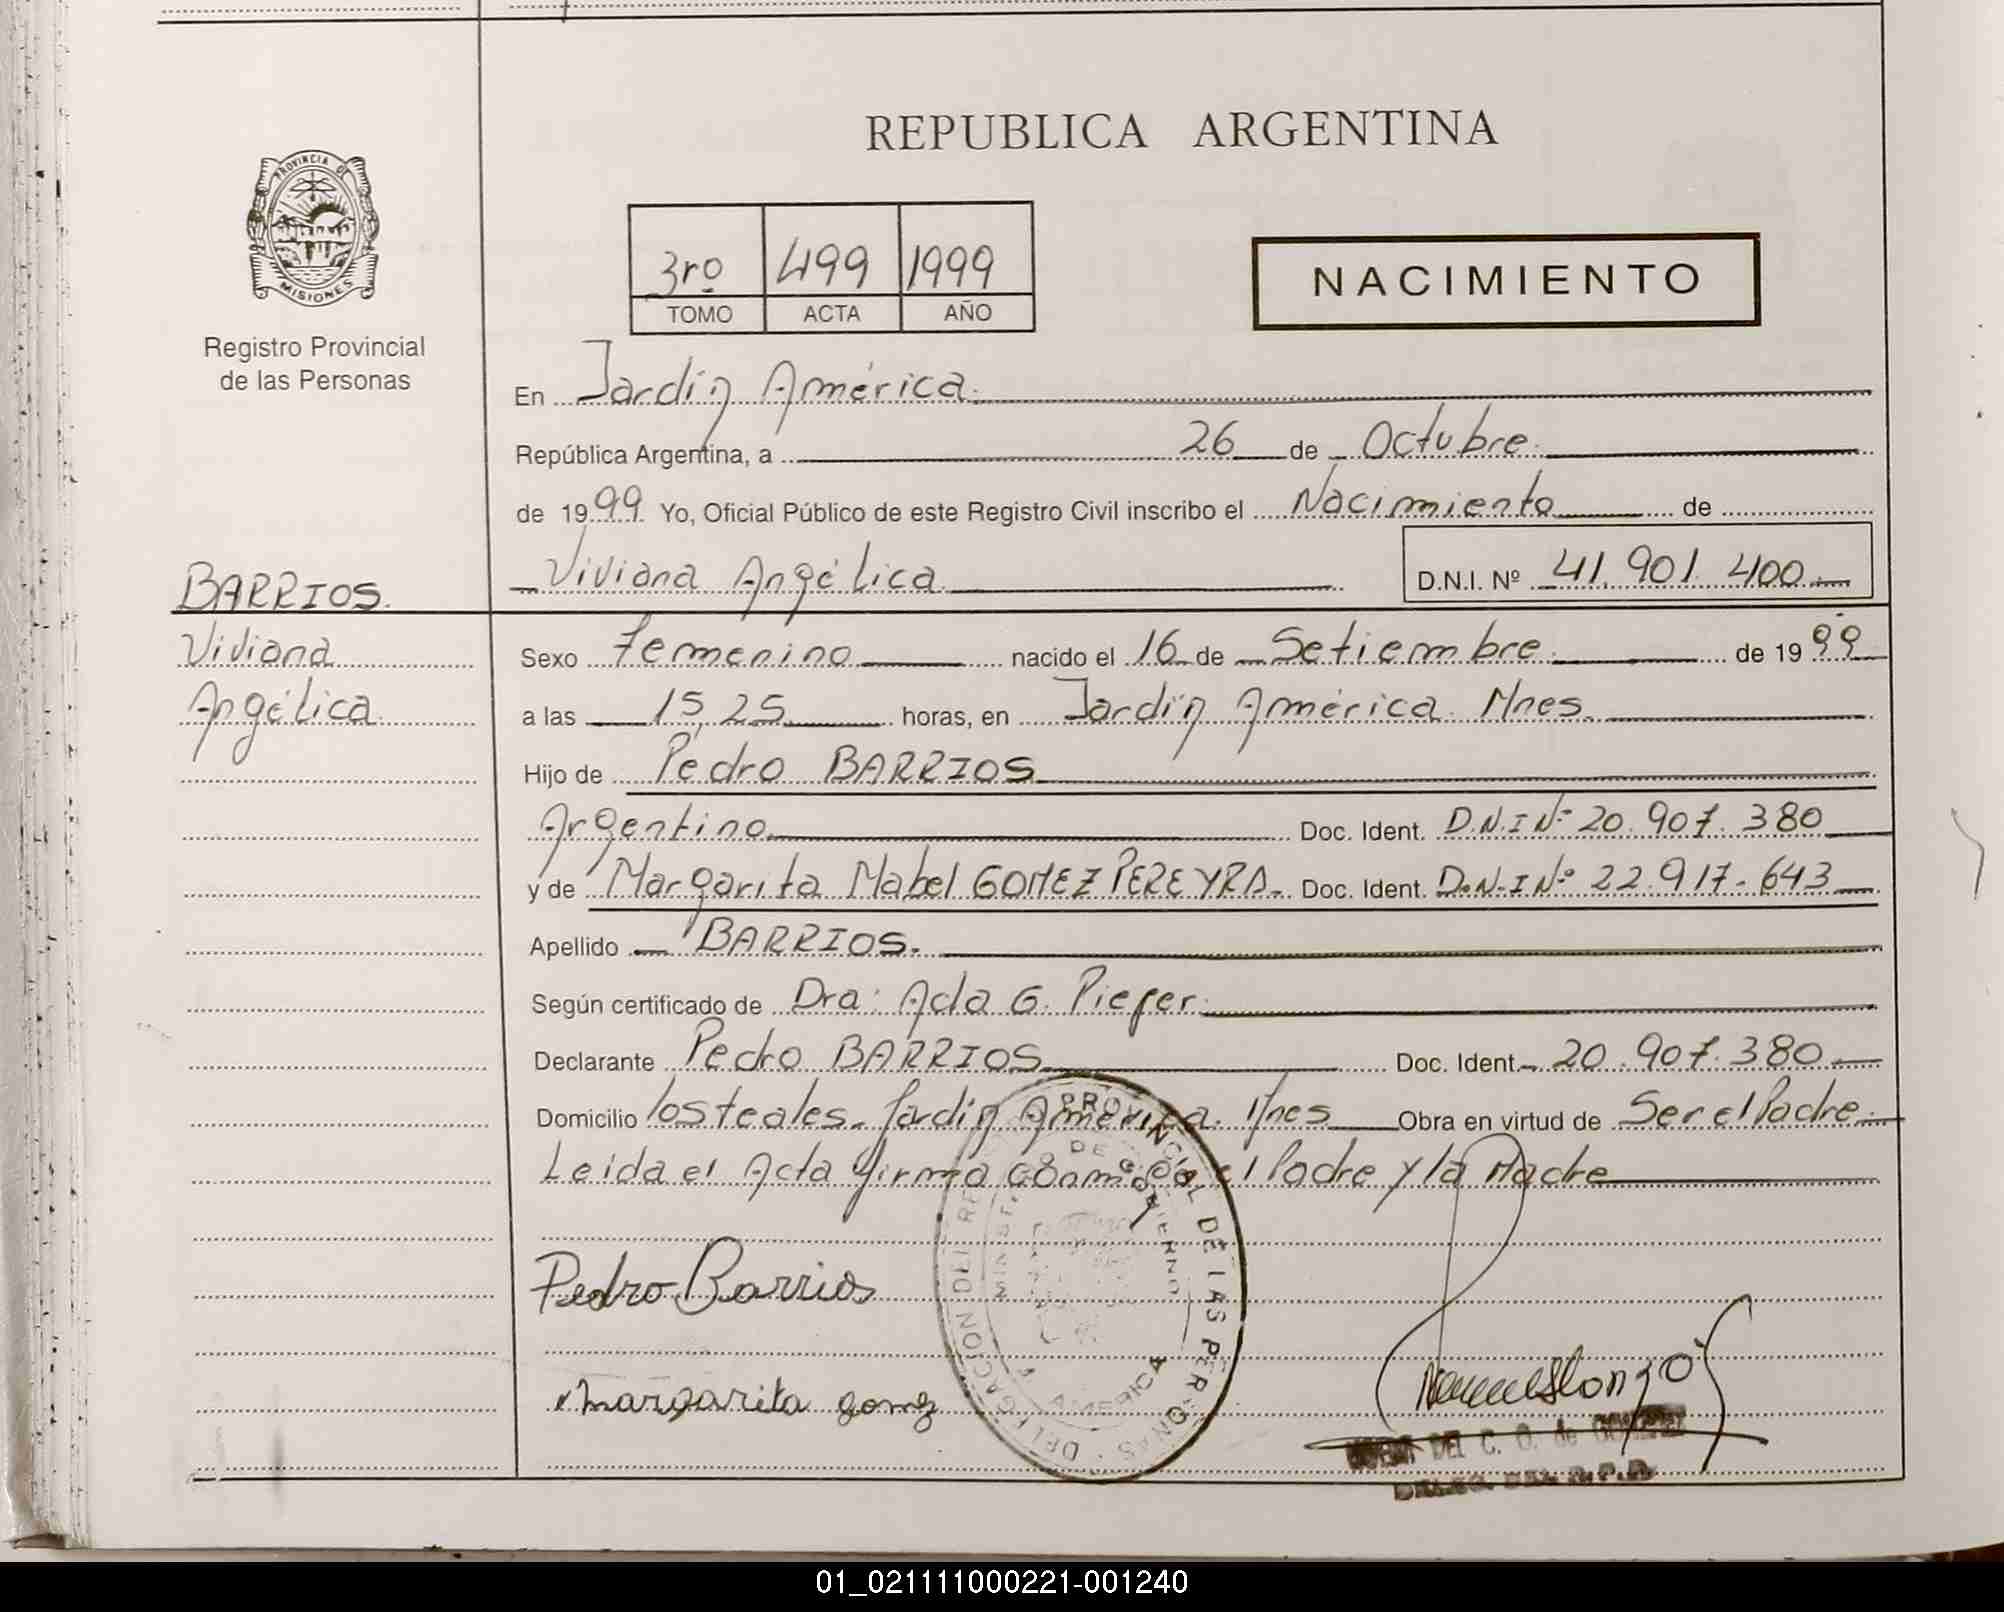 PROVINCIA DE
MISIONES
Registro Provincial
de las Personas
REPUBLICA ARGENTINA
3ro 499 1999
TOMO ACTA AÑO
NACIMIENTO
En Jardín América.
República Argentina, a 26 de Octubre.
de 1999 Yo, Oficial Público de este Registro Civil inscribo el Nacimiento de
BARRIOS. Viviana Angélica. D.N.I. Nº 41.901.400.
Viviana Sexo Femenino nacido el 16 de Setiembre. de 1999
Angélica. a las 15,25 horas, en Jardín América. Mnes.
Hijo de Pedro BARRIOS.
Argentino. Doc. Ident. D.N.I Nº 20.907.380
y de Margarita Mabel GOMEZ PEREYRA. Doc. Ident. D.N.I Nº 22.917.643
Apellido BARRIOS.
Según certificado de Dra: Ada G. Piefer.
Declarante Pedro BARRIOS. Doc. Ident. 20.907.380
Domicilio los teales. Jardín América. Mnes Obra en virtud de Ser el Padre.
Leida el Acta firma conmigo el Padre y la Madre
Pedro Barrios
Margarita gomez
DELEGACION DEL REGISTRO PROVINCIAL DE LAS PERSONAS
MINISTERIO DE GOBIERNO
AMERICA
DEL C. O. de GOMEZ
DELEG. DEL R.P.P.
01_021111000221-001240